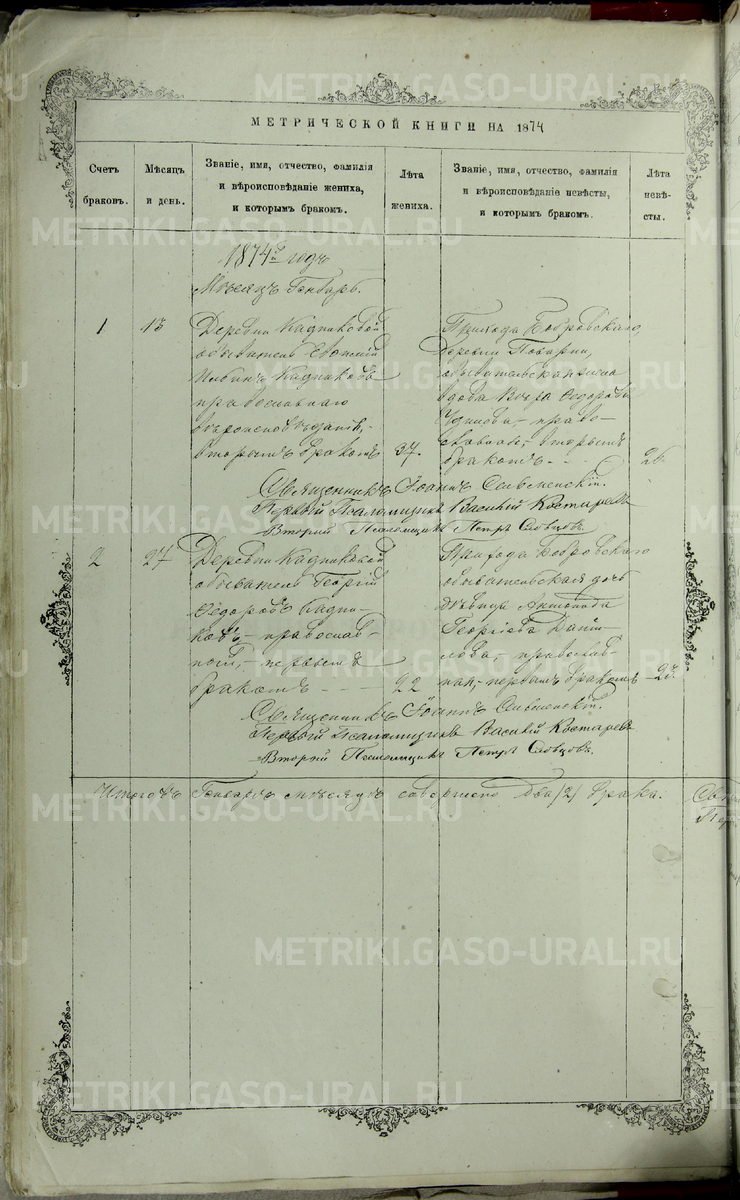 МЕТРИЧЕСКОЙ КНИГИ НА 1874
Счетъ
браковъ.
Мѣсяцъ
и день.
Званіе, имя, отчество, фамилія
и вѣроисповѣданіе жениха,
и которымъ бракомъ.
Лѣта
жениха.
Званіе, имя, отчество, фамилія
и вѣроисповѣданіе невѣсты,
и которымъ бракомъ.
Лѣта
невѣ-
сты.
1874й годъ
Мѣсяцъ Генварь.
1
13
Деревни Кадниковой
обыватель Евфимій
Ильинъ Кадниковъ
православнаго
вѣроисповѣданія,-
вторымъ бракомъ
37.
Прихода Бобровскаго,
деревни
обывательская жена
вдова Вѣра Ѳедорова
право-
славная,- вторымъ
бракомъ - -
26
Священникъ Іоаннъ
Первый Псаломщикъ Василій Костаревъ
Второй Псаломщикъ Петръ Словцовъ.
2
27
Деревни Кадниковой
обыватель Георгій
Ѳедоровъ Кадни-
ковъ,- православ-
ной,- первымъ
бракомъ - - -
22
Прихода Бобровскаго
обывательская дочь
дѣвица
Георгіева Дани-
лова,- православ-
ная,- первымъ бракомъ
23.
Священникъ Іоаннъ
Первый Псаломщикъ Василій Костаревъ
Второй Псаломщикъ Петръ Словцовъ.
Итого въ Генварѣ мѣсяцѣ совершено два (2) брака.
METRIKI.GASO-URAL.RU